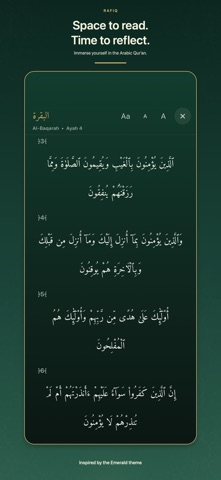 RAFIQ
Space to read.
Time to reflect.
Immerse yourself in the Arabic Qur'an.
البقرة
Aa A A ×
Al-Baqarah • Ayah 4
﴾3﴿
ٱلَّذِينَ يُؤْمِنُونَ بِٱلْغَيْبِ وَيُقِيمُونَ ٱلصَّلَوٰةَ وَمِمَّا
رَزَقْنَٰهُمْ يُنفِقُونَ
﴾4﴿
وَٱلَّذِينَ يُؤْمِنُونَ بِمَآ أُنزِلَ إِلَيْكَ وَمَآ أُنزِلَ مِن قَبْلِكَ
وَبِٱلْـَٔاخِرَةِ هُمْ يُوقِنُونَ
﴾5﴿
أُو۟لَٰٓئِكَ عَلَىٰ هُدًى مِّن رَّبِّهِمْ وَأُو۟لَٰٓئِكَ هُمُ
ٱلْمُفْلِحُونَ
﴾6﴿
إِنَّ ٱلَّذِينَ كَفَرُوا۟ سَوَآءٌ عَلَيْهِمْ ءَأَنذَرْتَهُمْ أَمْ لَمْ
تُنذِرْهُمْ لَا يُؤْمِنُونَ
Inspired by the Emerald theme